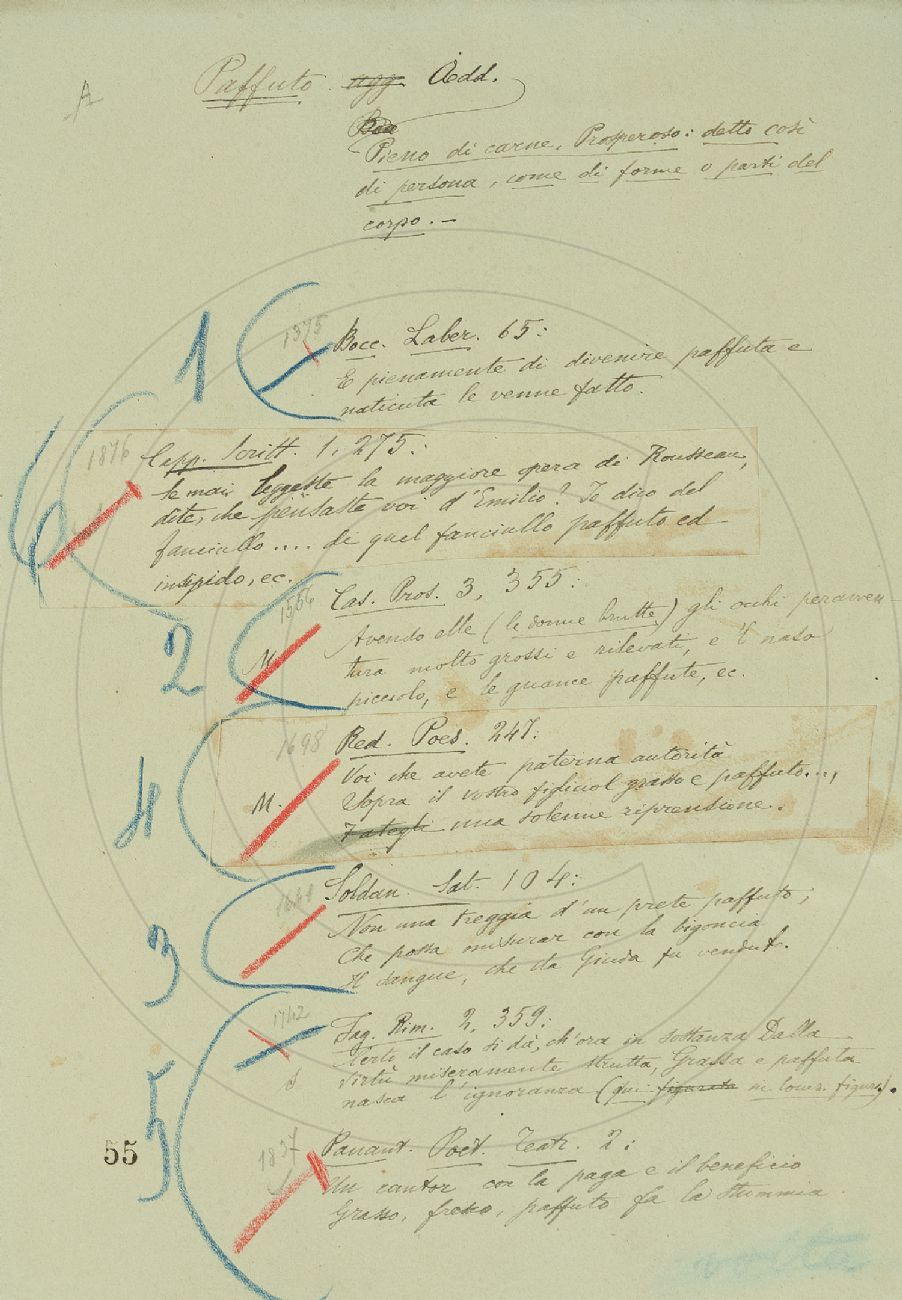 A
Paffuto. agg Add.
Boa
Pieno di carne, Prosperoso: detto così
di persona, come di forme o parti del
corpo. –
1
1375
Bocc. Laber. 65:
E pienamente di divenire paffuta e
naticuta le venne fatto.
6
1876
Capp. Scritt. 1, 275:
Se mai leggeste la maggiore opera di Rousseau,
dite, che pensaste voi d'Emilio? Io dico del
fanciullo .... de quel fanciullo paffuto ed
insipido, ec.
2
1556
M.
Cas. Pros. 3, 355:
Avendo elle (le donne brutte) gli occhi peravven
tura molto grossi e rilevati, e 'l naso
piccolo, e le guance paffute, ec.
4
1698
M.
Red. Poes. 247:
Voi che avete paterna autorità
Sopra il vostro figliuol grasso e paffuto...,
Fategli una solenne riprensione.
3
1641
Soldan. Sat. 104:
Non una treggia d'un prete paffuto;
Che possa misurar con la bigoncia
Il sangue, che da Giuda fu venduto.
5
1742
Fag. Rim. 2, 359:
il caso si dà, ch'ora in sostanza Dalla
virtù miseramente strutta, Grassa e paffuta
nasca l'ignoranza (qui figurato in locuz. figur.).
55
1837
Panant. Poet. Teatr. 2:
Un cantor con la paga e il beneficio
Grasso, fresco, paffuto fa la Mummia
volta